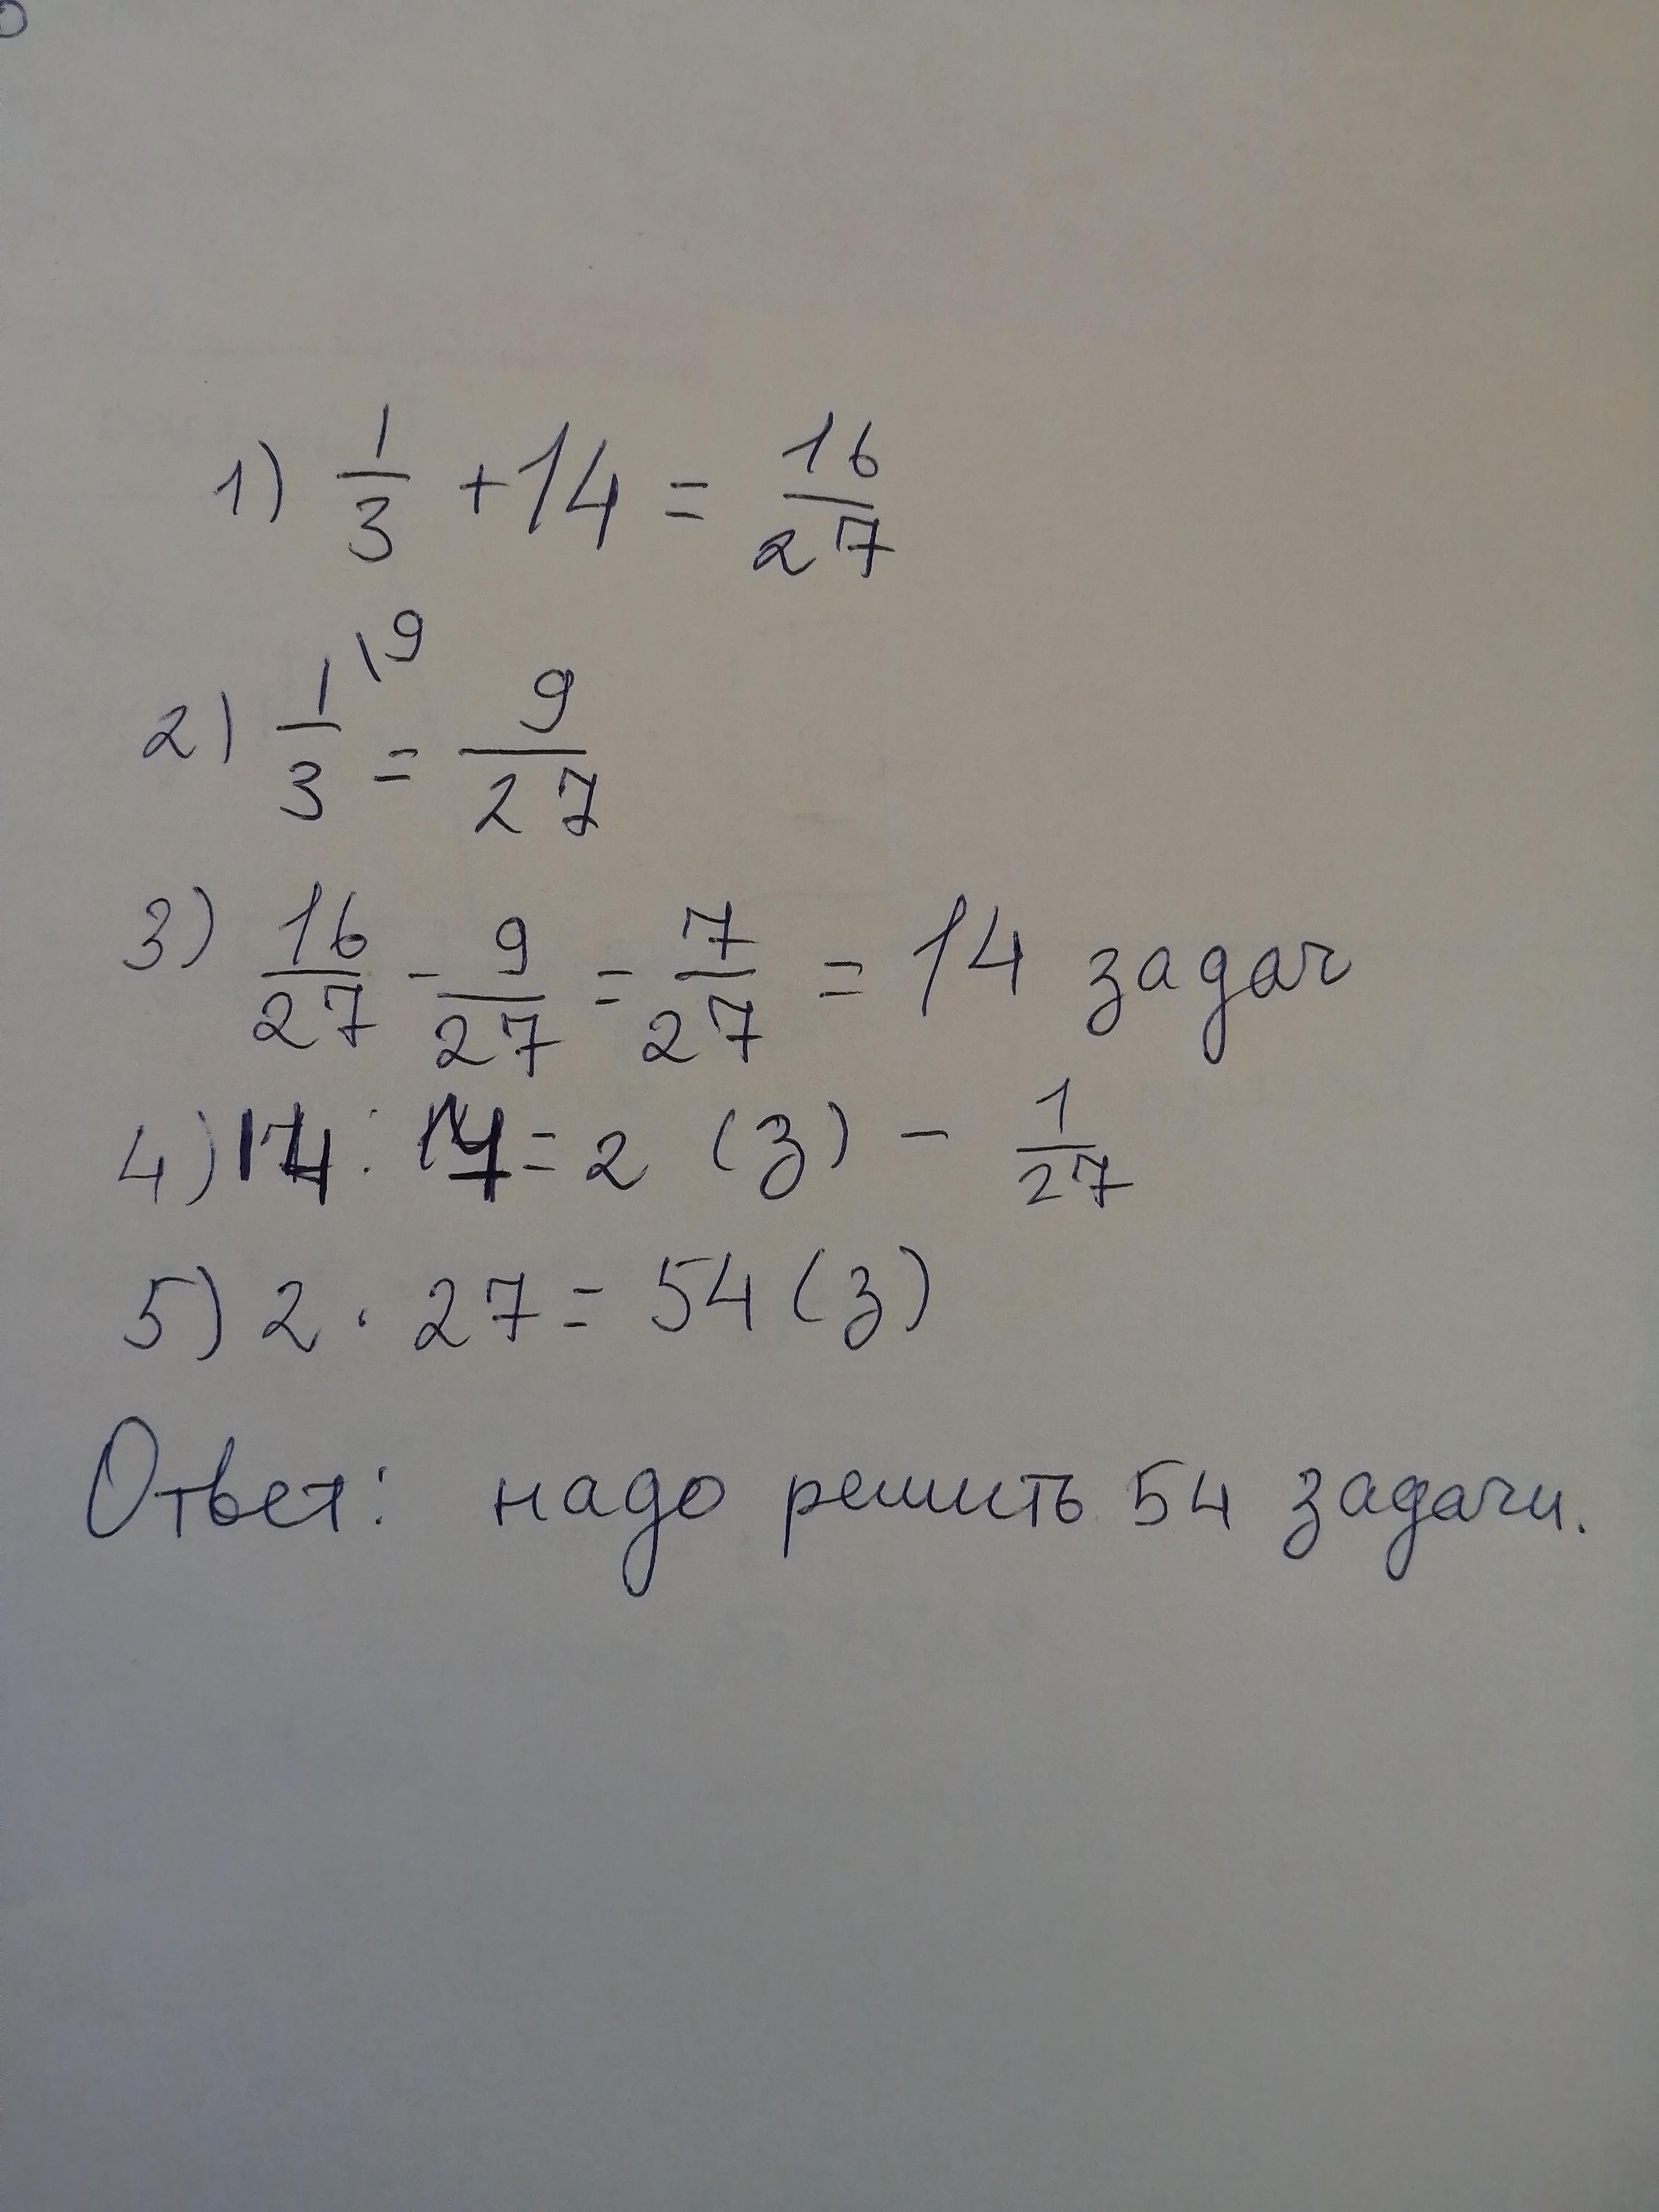 1) 1/3 + 14 = 16/27
2) 1/3 \9 = 9/27
3) 16/27 - 9/27 = 7/27 = 14 задач
4) 14 : = 2 (з) - 1/27
5) 2 · 27 = 54 (з)
Ответ: надо решить 54 задачи.